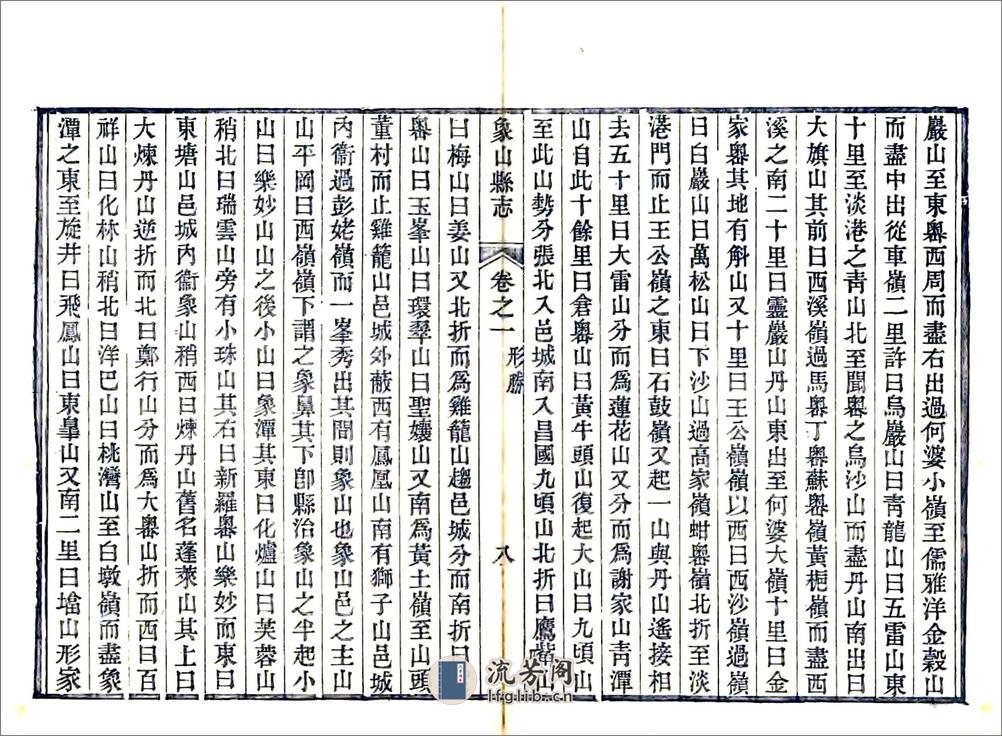 巖山至東嶴西周而盡右出過何婆小嶺至儒雅洋金穀山
而盡中出從車嶺二里許曰烏巖山曰靑龍山曰五雷山東
十里至淡港之靑山北至閬嶴之烏沙山而盡丹山南出曰
大旗山其前曰西溪嶺過馬嶴丁嶴蘇嶴嶺黃梔嶺而盡西
溪之南二十里曰靈巖山丹山東出至何婆大嶺十里曰金
家嶴其地有斛山又十里曰王公嶺嶺以西曰西沙嶺過嶺
曰白巖山曰萬松山曰下沙山過高家嶺蚶嶴嶺北折至淡
港門而止王公嶺之東曰石鼓嶺又起一山與丹山遙接相
去五十里曰大雷山分而爲蓮花山又分而爲謝家山靑潭
山自此十餘里曰倉嶴山曰黃牛頭山復起大山曰九頃山
至此山勢分張北入邑城南入昌國九頃山北折曰鷹嘴山
象山縣志
卷之一
形勝
八
曰梅山曰姜山又北折而爲雞籠山趨邑城分而南折曰
嶴山曰玉峯山曰環翠山曰聖孃山又南爲黃土嶺至山頭
董村而止雞籠山邑城外蔽西有鳳凰山南有獅子山邑城
內衞過彭姥嶺而一峯秀出其間則象山也象山邑之主山
山平岡曰西嶺嶺下謂之象鼻其下卽縣治象山之半起小
山曰樂妙山山之後小山曰象潭其東曰化爐山曰芙蓉山
稍北曰瑞雲山旁有小珠山其右曰新羅嶴山樂妙而東曰
東塘山邑城內衞象山稍西曰煉丹山舊名蓬萊山其上曰
大煉丹山逆折而北曰鄭行山分而爲大嶴山折而西曰百
祥山曰化林山稍北曰洋巴山曰桃灣山至白墩嶺而盡象
潭之東至旋井曰飛鳳山曰東皐山又南二里曰壋山形家
流芳阁
lfglib.cn